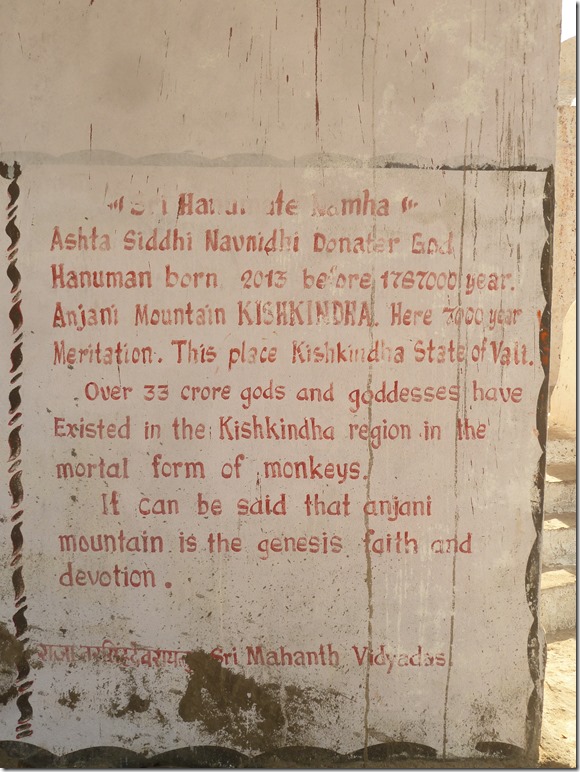 Sri Hanumate Namha
Ashta Siddhi Navnidhi Donater God
Hanuman born 2013 before 1767000 year.
Anjani Mountain KISHKINDHA. Here year
Meritation. This place Kishkindha State of Vali.
Over 33 crore gods and goddesses have
Existed in the Kishkindha region in the
mortal form of monkeys.
It can be said that anjani
mountain is the genesis faith and
devotion.
राजा Sri Mahanth Vidyadas